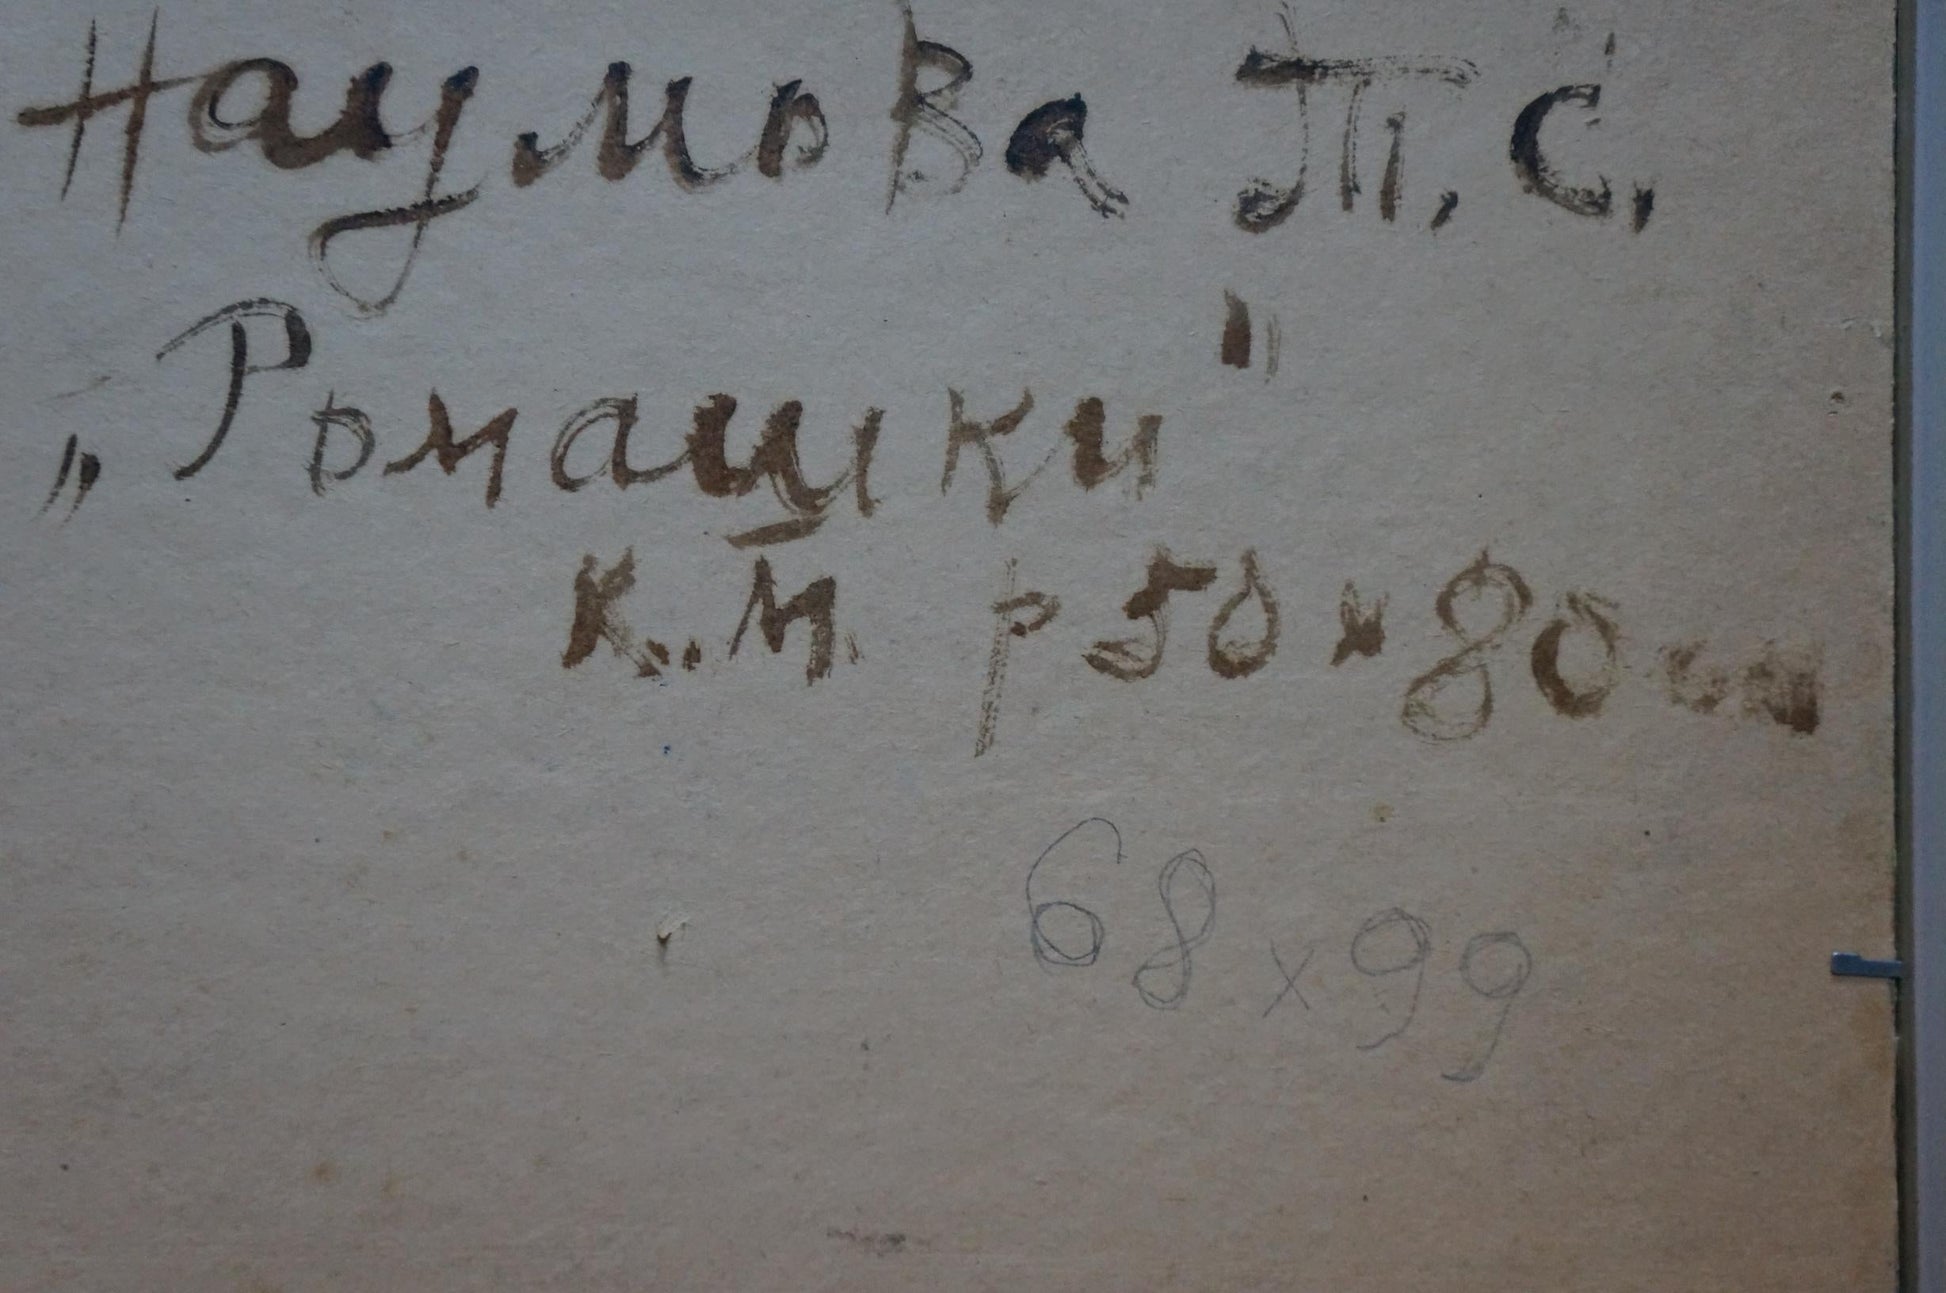 Наумова Т. С.
„Ромашки"
К. М. р 50 х 80 см
68 х 99